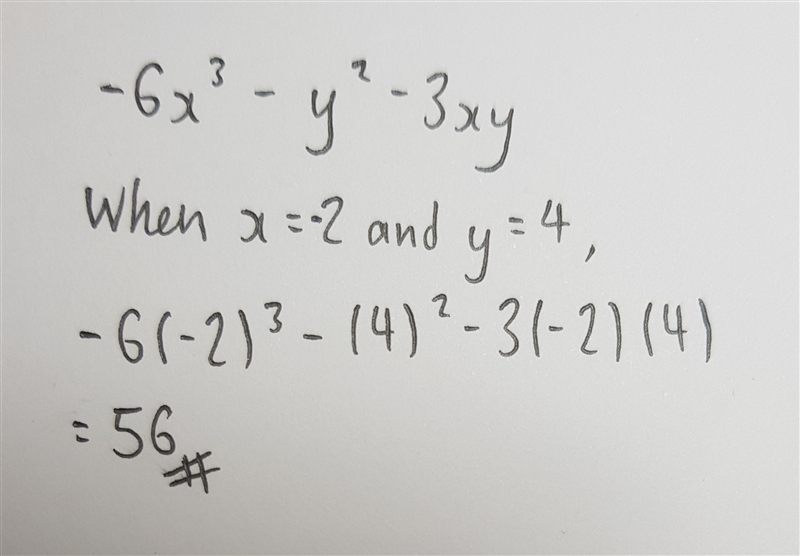 -6x³ - y² - 3xy
When x = -2 and y = 4,
-6(-2)³ - (4)² - 3(-2)(4)
= 56#